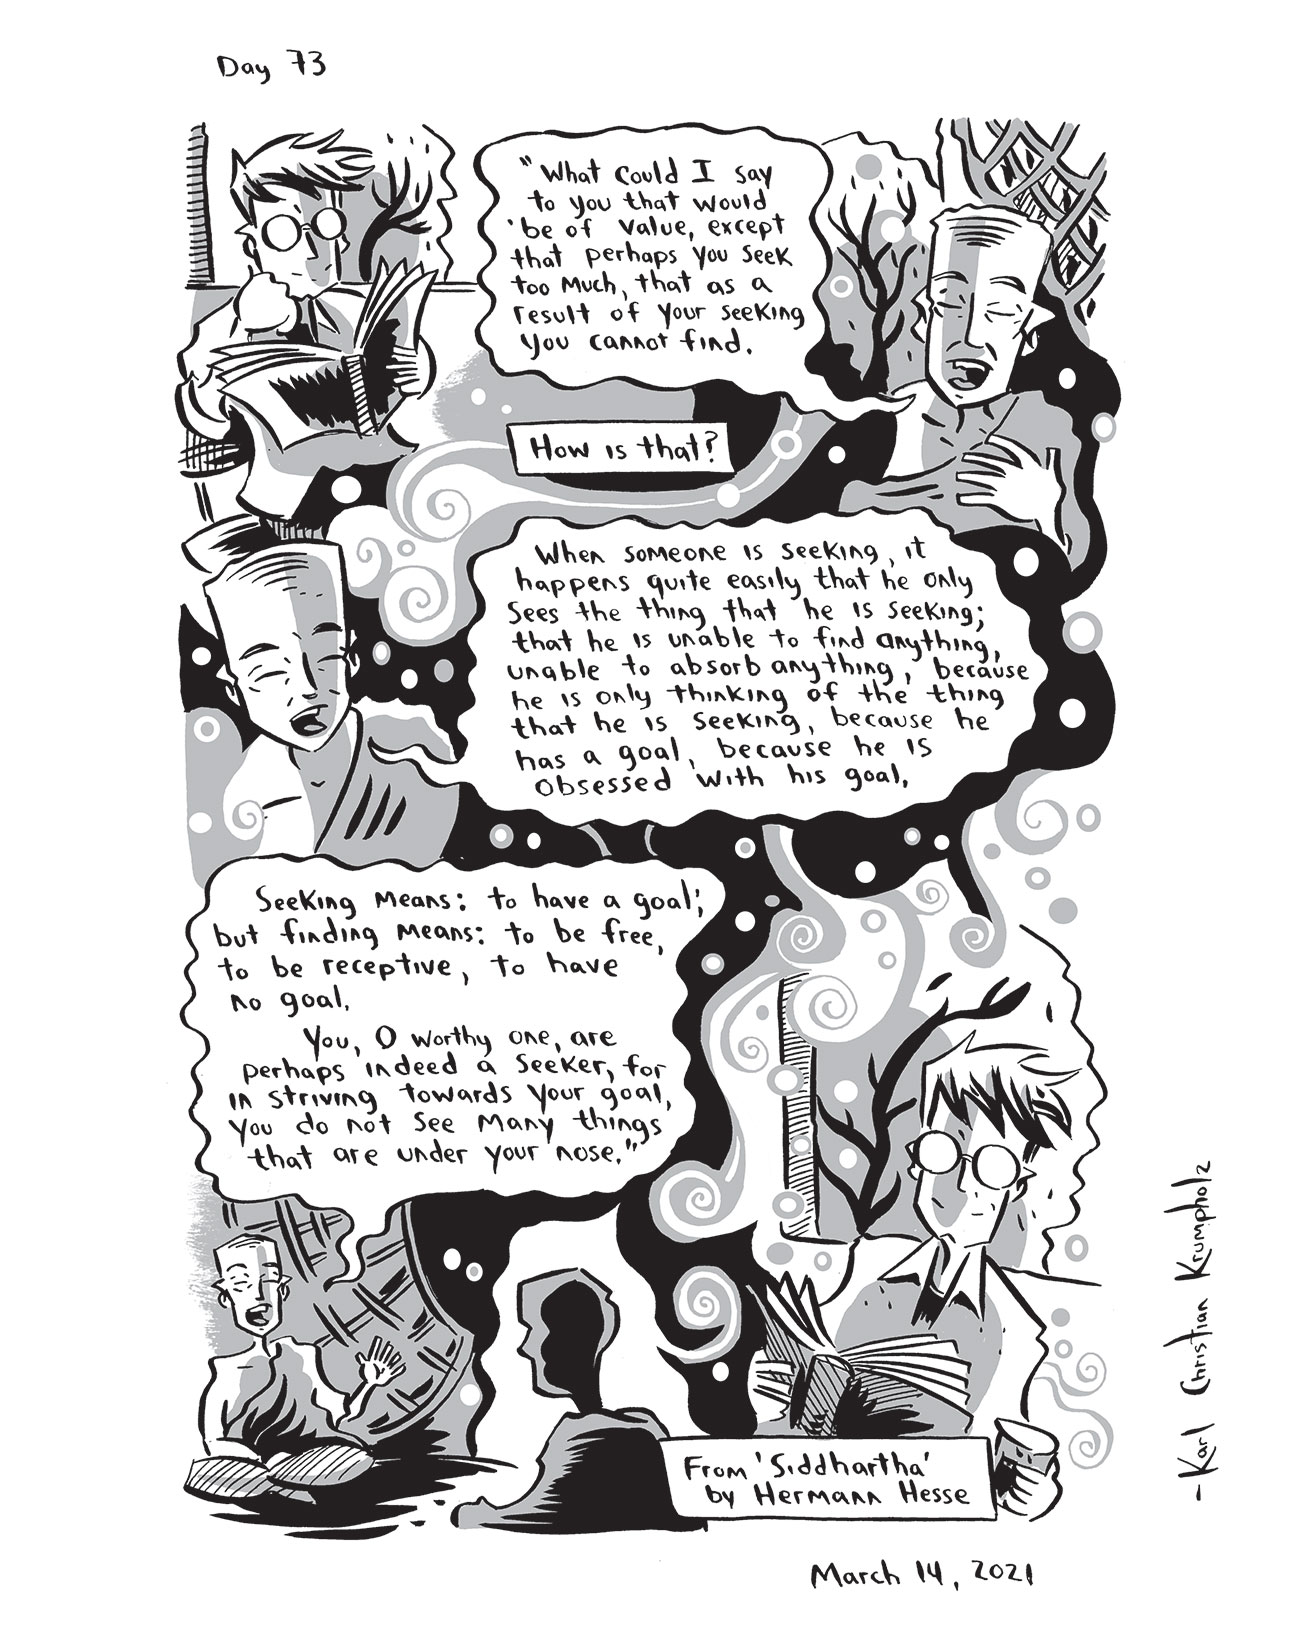 Day 73
"What could I say
to you that would
be of value, except
that perhaps you seek
too much, that as a
result of your seeking
you cannot find.
How is that?
When someone is seeking, it
happens quite easily that he only
sees the thing that he is seeking;
that he is unable to find anything,
unable to absorb anything, because
he is only thinking of the thing
that he is seeking, because he
has a goal, because he is
obsessed with his goal.
Seeking means: to have a goal;
but finding means: to be free,
to be receptive, to have
no goal.
You, O worthy one, are
perhaps indeed a seeker, for
in striving towards your goal,
you do not see many things
that are under your nose."
From 'Siddhartha'
by Hermann Hesse
- Karl Christian Krumpholz
March 14, 2021